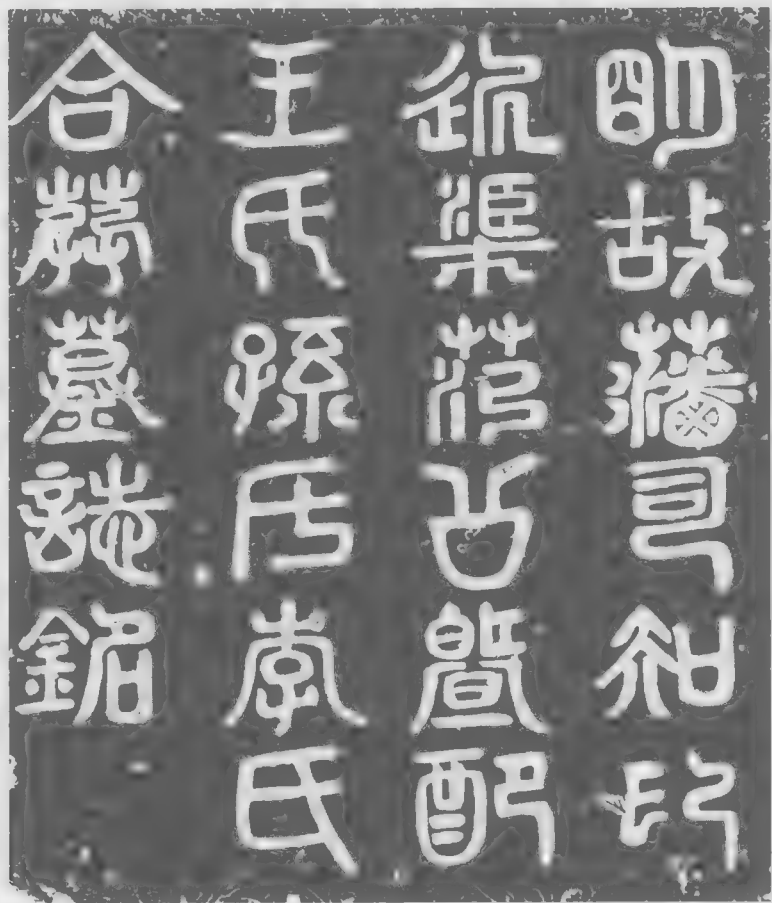 明故藩司知印
近渠范公暨配
王氏孫氏李氏
合葬墓誌銘